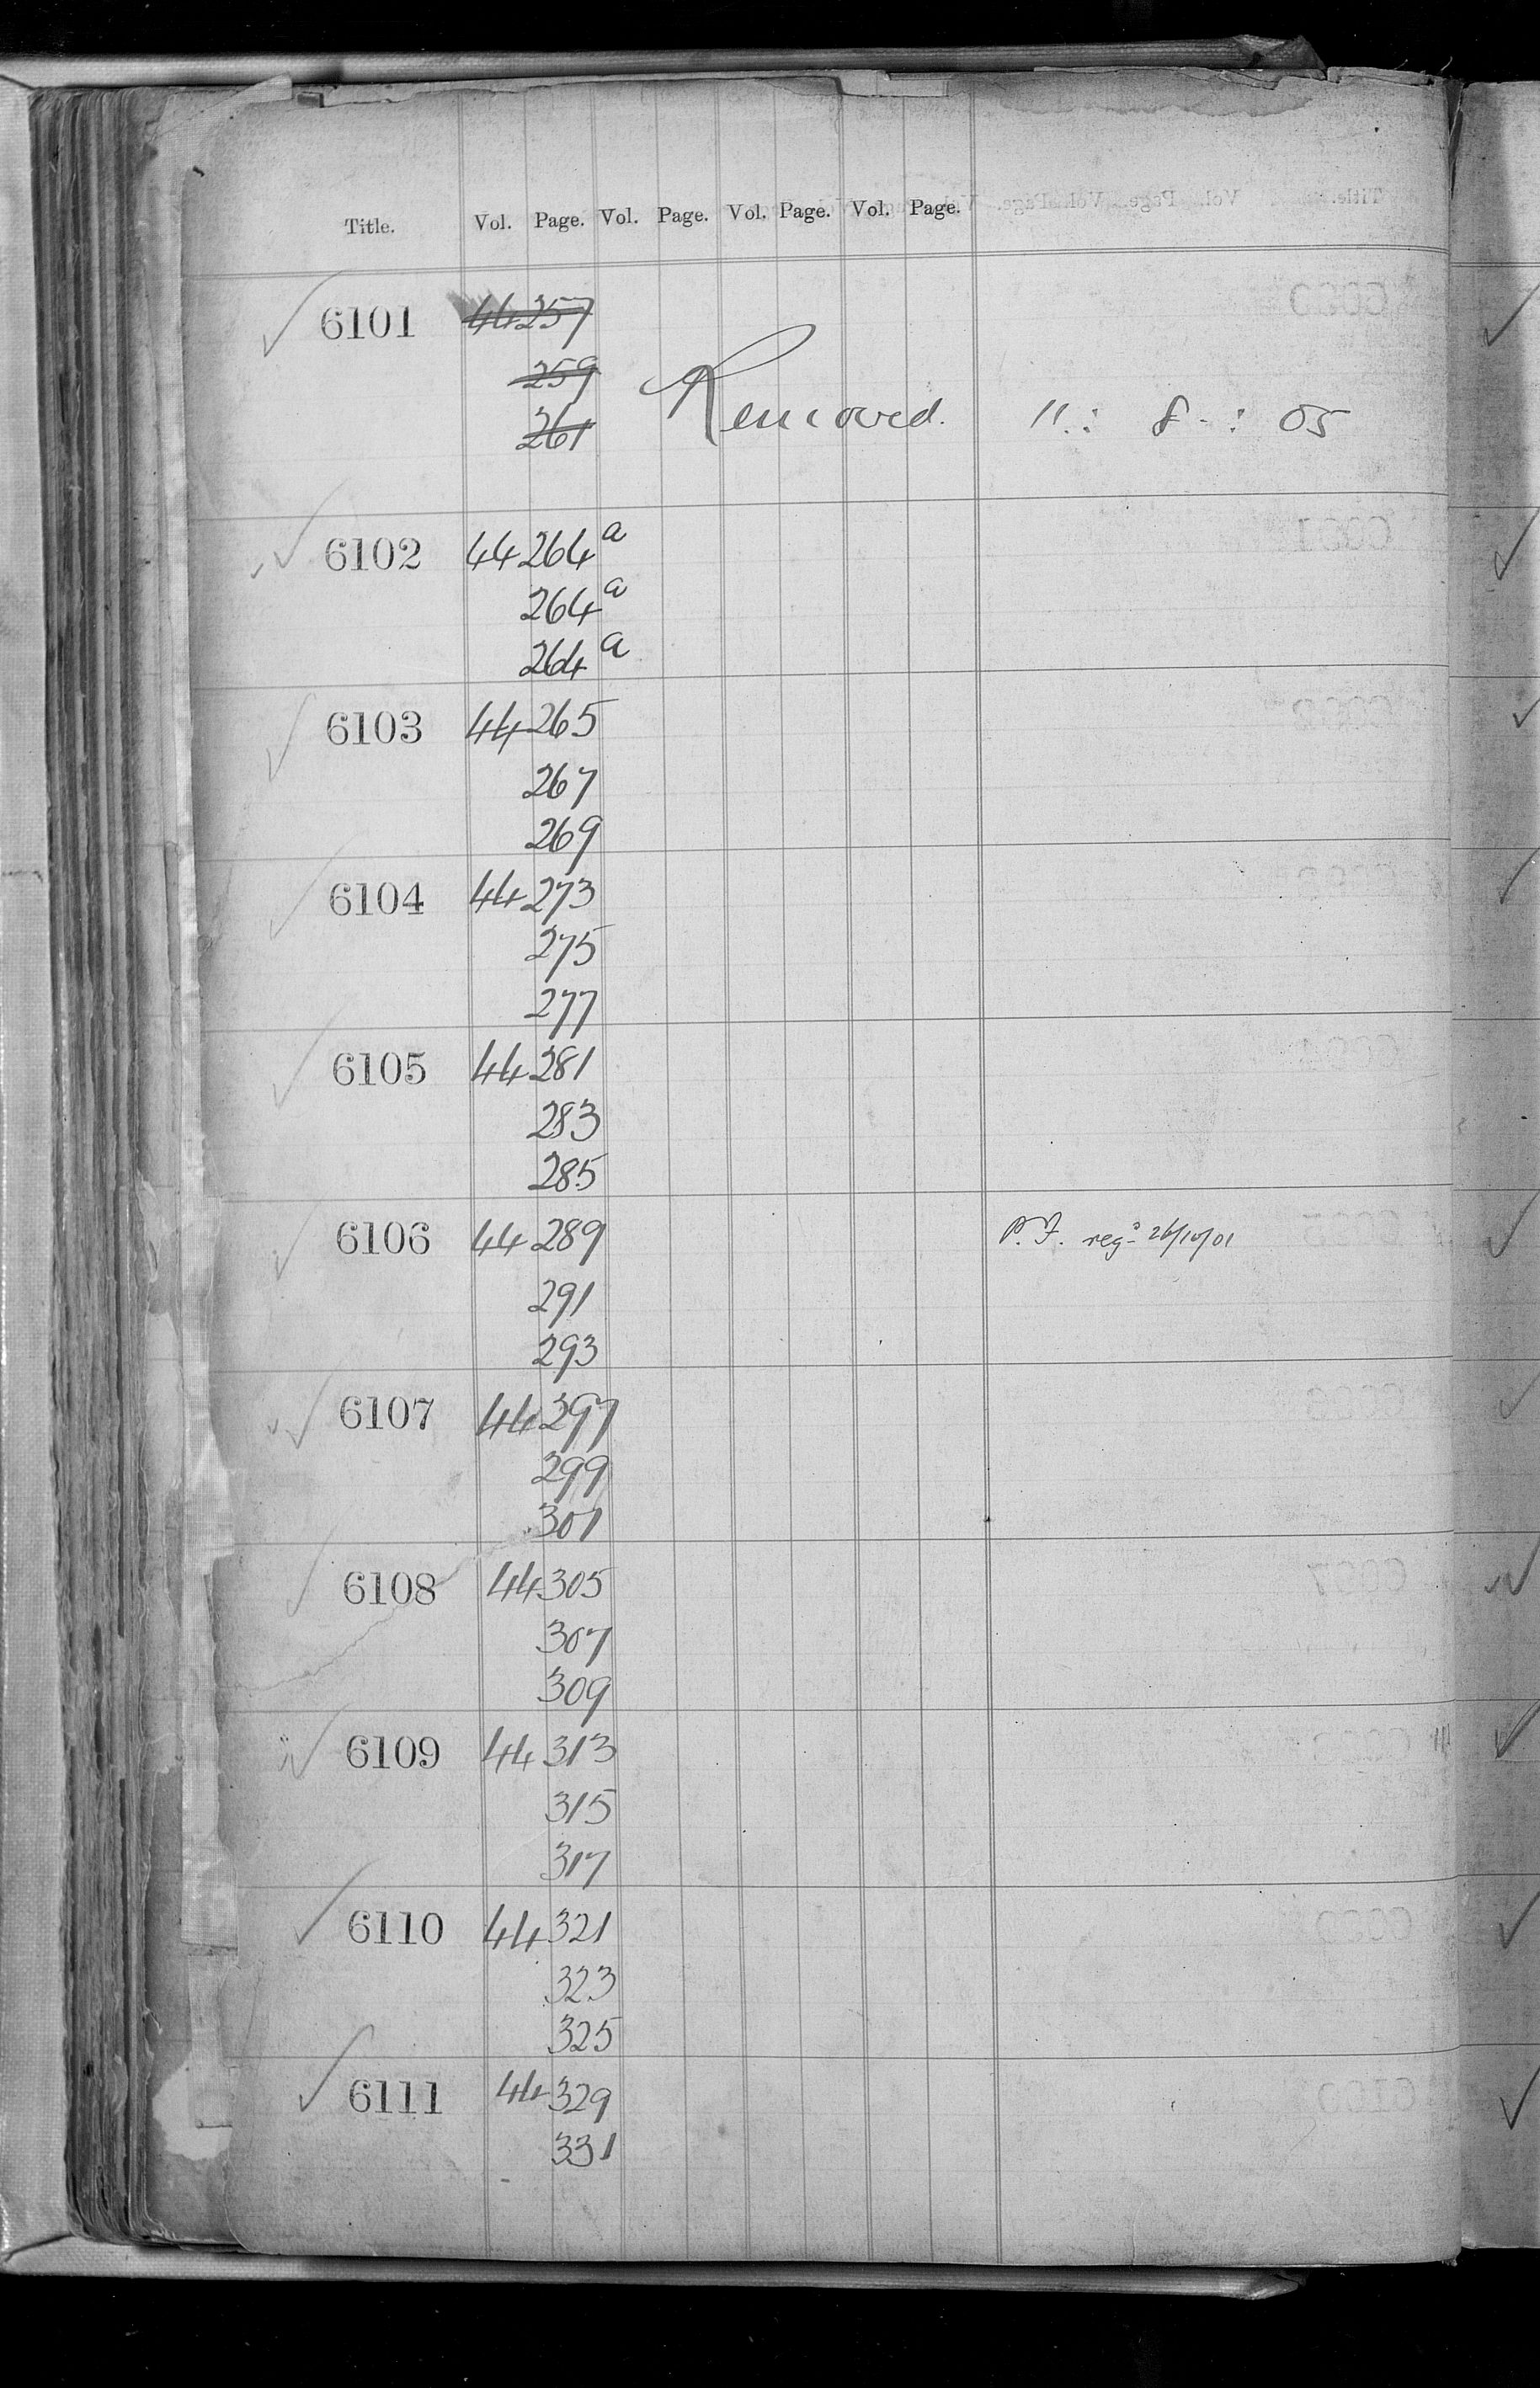 Title. Vol. Page. Vol. Page. Vol. Page. Vol. Page.
6101 44 257
259
261 Removed. 11 : 8 : 05
6102 44 264a
264a
264a
6103 44 265
267
269
6104 44 273
275
277
6105 44 281
283
285
6106 44 289 P.F. regd 26/10/01
291
293
6107 44 297
299
301
6108 44 305
307
309
6109 44 313
315
317
6110 44 321
323
325
6111 44 329
331